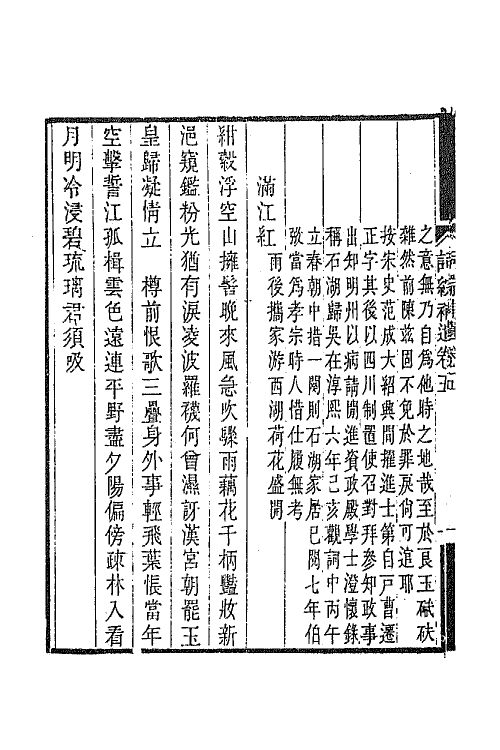 詞綜補遺卷五
之意無乃自爲他時之地哉至於良玉碔砆
雜然前陳茲固不免於罪戾尙可逭耶
按宋史范成大紹興間擢進士第自戸曹遷
正字其後以四川制置使召對拜參知政事
出知明州以病請閒進資政殿學士澄懷錄
稱石湖歸吳在淳熙六年己亥觀詞中丙午
立春朝中措一闋則石湖家居已閱七年伯
攽當爲孝宗時人惜仕履無考
滿江紅 雨後攜家游西湖荷花盛開
紺縠浮空山擁髻晚來風急吹驟雨藕花千柄豔妝新
浥窺鑑粉光猶有淚凌波羅襪何曾濕訝漢宮朝罷玉
皇歸凝情立 樽前恨歌三疊身外事輕飛葉悵當年
空擊誓江孤楫雲色遠連平野盡夕陽偏傍疎林入看
月明冷浸碧琉璃君須吸